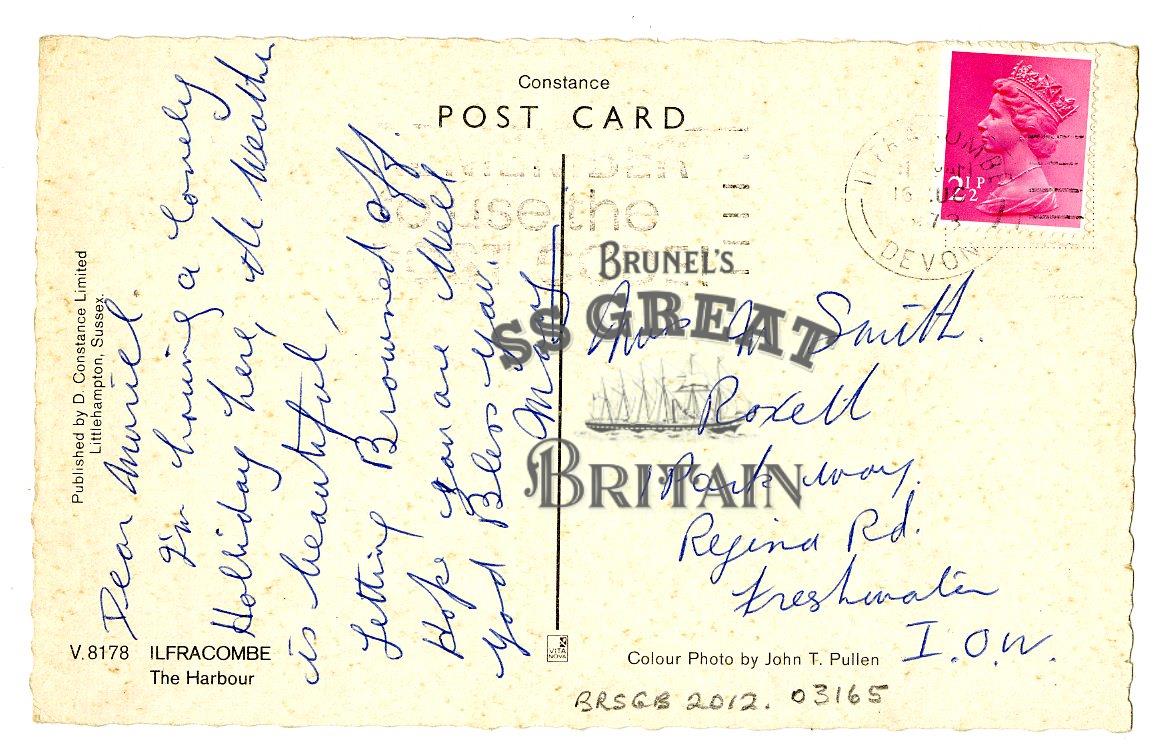 Constance
POST CARD
Published by D. Constance Limited
Littlehampton, Sussex.
Dear Muriel
I'm having a lonely
Holliday here, the Weather
is beautiful,
Getting Browned off.
Hope you are Well
God Bless You.
Mary
V.8178 ILFRACOMBE
The Harbour
VITA
NOVA
use the
ILFRACOMBE
16
DEVON
2½P
BRUNEL'S
SS GREAT
BRITAIN
M Smith.
Roxell
Park way.
Regina Rd.
Freshwater
I.O.W.
Colour Photo by John T. Pullen
BRSGB 2012. 03165